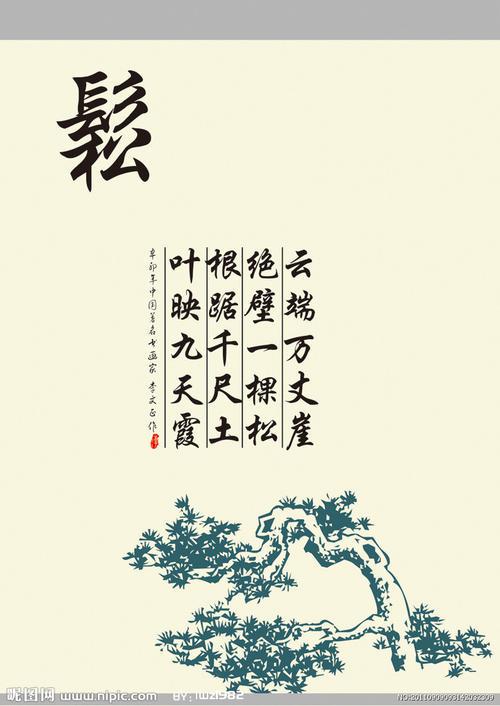 鬆
云端万丈崖
绝壁一棵松
根踞千尺土
叶映九天霞
辛卯年中国著名书画家 李文正作
昵图网 www.nipic.com by: lwz1982
NO:20110909093142032309